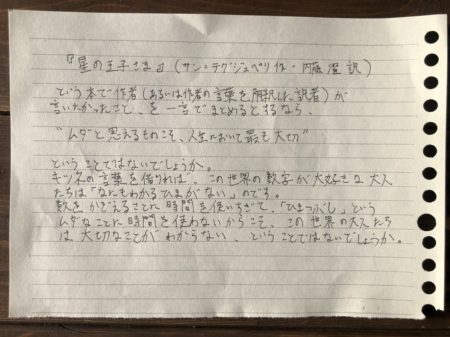 『星の王子さま』(サン=テグジュペリ作・内藤濯訳)
という本で作者(あるいは作者の言葉を解釈した訳者)が
言いたかったこと、を一言でまとめるとするなら、
"ムダと思えるものこそ、人生において最も大切"
ということではないでしょうか。
キツネの言葉を借りれば、この世界の数字が大好きな大人
たちは「なんにもわかるひまがない」のです。
数をかぞえることに時間を使いすぎて、「ひまつぶし」という
ムダなことに時間を使わないからこそ、この世界の大人たち
は大切なことがわからない、ということではないでしょうか。